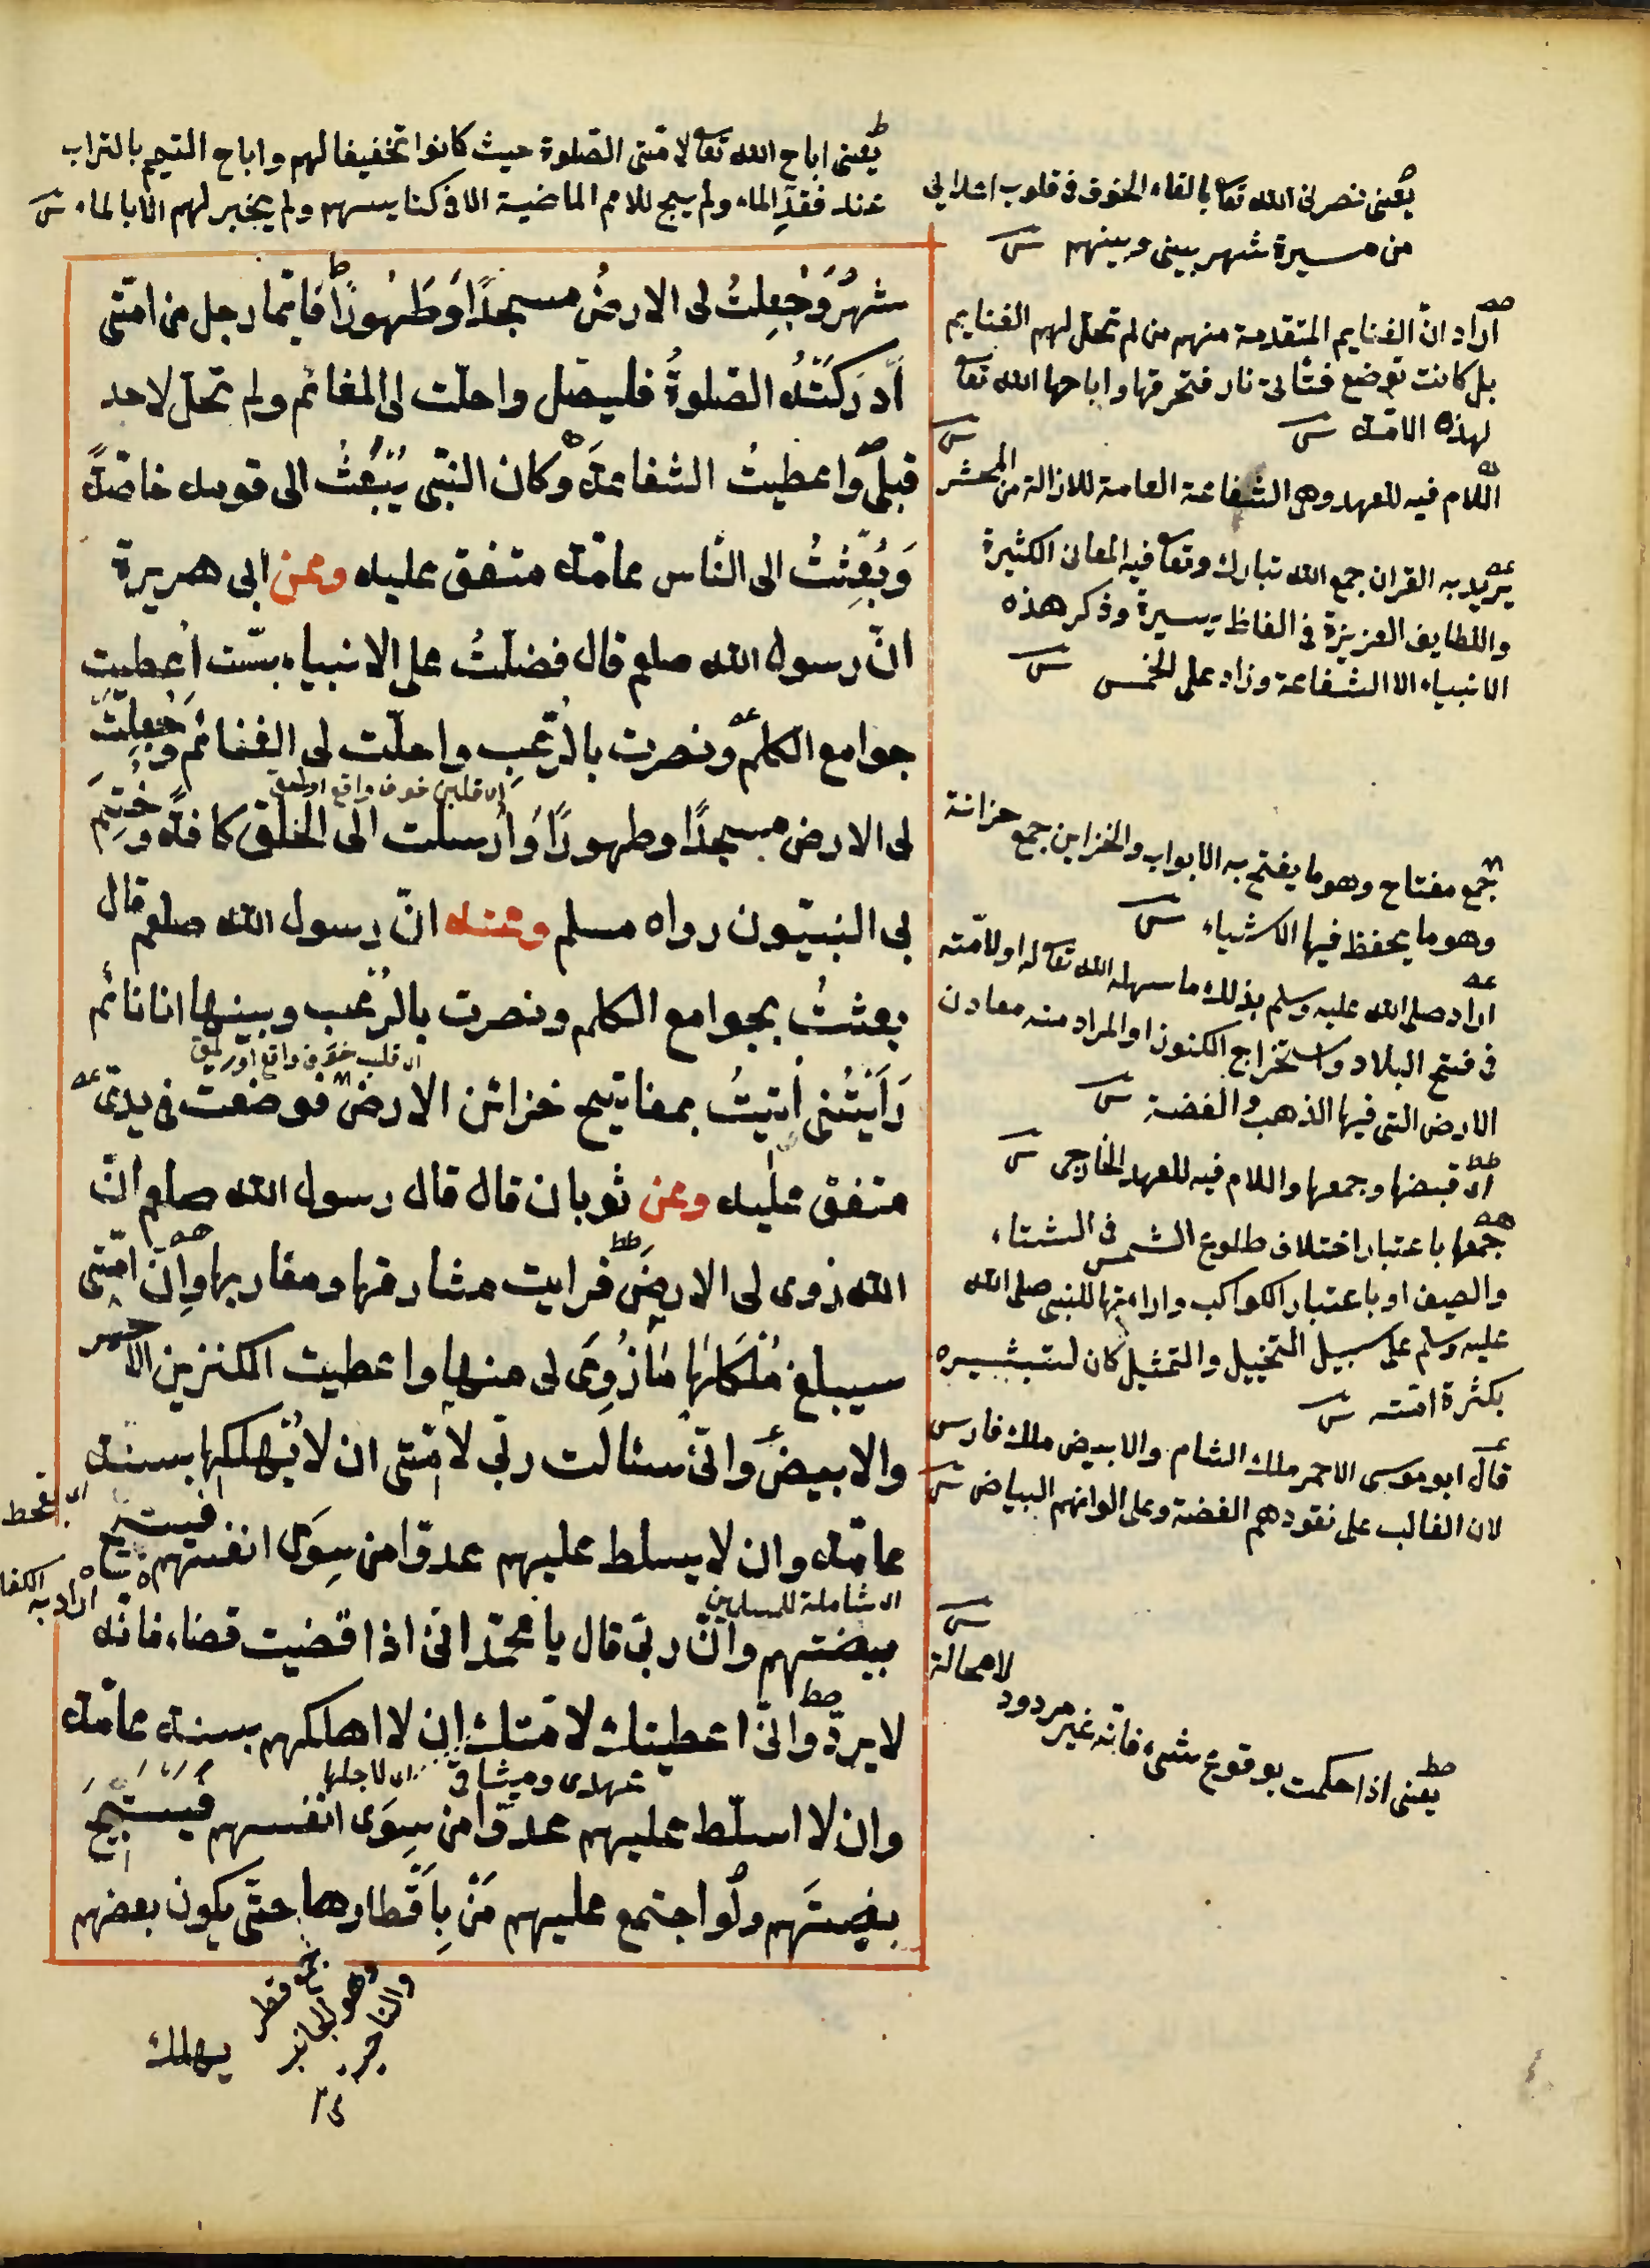 يعنى اباح الله تعا لامتى الصلوة حيث كانوا تخفيفا لهم واباح التيمم بالتراب
عند فقد الماء ولم يبح للامم الماضية الا فى كنايسهم ولم يجز لهم الا بالماء
شهر وَجُعِلتُ لى الارضُ مسجدًا وَطَهُورًا فايّما رجل من امّتى
اَدرَكَتْهُ الصّلوةُ فليصّل واحلّت لى المغانم ولم تحلّ لاحد
قبلى واعطيتُ الشفاعةَ وكان النبّى يُبْعَثُ الى قومه خاصّةً
وَبُعِثتُ الى النّاس عامّة متفق عليه وعن ابى هريرة
انّ رسول الله صلعم قال فضلتُ على الانبياء بستّ اُعطيت
جوامع الكلم ونصرت بالرّعب واحلّت لى الغنائم وَجُعِلَتْ
لى الارض مسجدًا وطهورًا وَاُرسلت الى الخلق كافة وخُتِمَ
بى النبيّون رواه مسلم وعنه انّ رسول الله صلعم قال
بعثتُ بجوامع الكلم ونصرت بالرّعب وبينها انا نائم
رَاَيتُنى اُتيتُ بمفاتيح خزائن الارض فوضعت فى يدىّ
متفق عليه وعن ثوبان قال قال رسول الله صلعم انّ
الله زوى لى الارضَ فرايت مشارقها ومغاربها وانّ امّتى
سيبلغ مُلكها مَا زُوِىَ لى منها واعطيت الكنزين الاحمر
والابيض وانّى سئالت ربّى لامّتى ان لا يُهلكها بسنة
عامّة وان لا يسلط عليهم عدوّا من سِوَى انفسهم فيستبيح
اى شاملة للمسلمين
بيضتهم وانّ ربّى قال يا محمّد انّى اذا قضيت قضاء فانّه
لا يردّ وانّى اعطيتك لامّتك ان لا اهلكهم بسنة عامّة
عهدى وميثاقى اى لاجلها
وان لا اسلّط عليهم عدوّا من سِوَى انفسهم فَيَستَبيحَ
بيضتَهم ولو اجتمع عليهم مَنْ بِاَقطارها حتّى يكون بعضهم
جمع قطر
وهو الجانب
والناحية
يهلك
يعنى نصرنى الله تعا بالقاء الخوف فى قلوب اعدائى
من مسيرة شهر بينى وبينهم
اراد انّ الغنايم المتقدمة منهم من لم تحل لهم الغنايم
بل كانت توضع فتاتى نار فتحرقها واباحها الله تعا
لهذه الامّة
اللام فيه للعهد وهى الشفاعة العامة للازالة من المحشر
يريد به القران جمع الله تبارك وتعا فيه المعانى الكثيرة
واللطايف العزيزة فى الفاظ يسيرة وذكر هذه
الانبياء الا الشفاعة وزاد على الخمس
جمع مفتاح وهو ما يفتح به الابواب والخزاين جمع خزانة
وهو ما يحفظ فيها الاشياء
اراد صلى الله عليه وسلم بذلك ما سهله الله تعا له اولامّته
فى فتح البلاد واستخراج الكنوز او المراد منه معادن
الارض التى فيها الذهب والفضة
اى قبضها وجمعها واللام فيه للعهد الخارجى
جمعها باعتبار اختلاف طلوع الشمس فى الشتاء
والصيف او باعتبار الكواكب واراءتها للنبى صلى الله
عليه وسلم على سبيل التخييل والتمثيل كان لتبشيره
بكثرة امّته
قال ابو موسى الاحمر ملك الشام والابيض ملك فارس
لان الغالب على نقودهم الفضة وعلى الوانهم البياض
لا محالة
يعنى اذا حكمت بوقوع شىء فانّه غير مردود
اى بقحط
اراد به الكفا